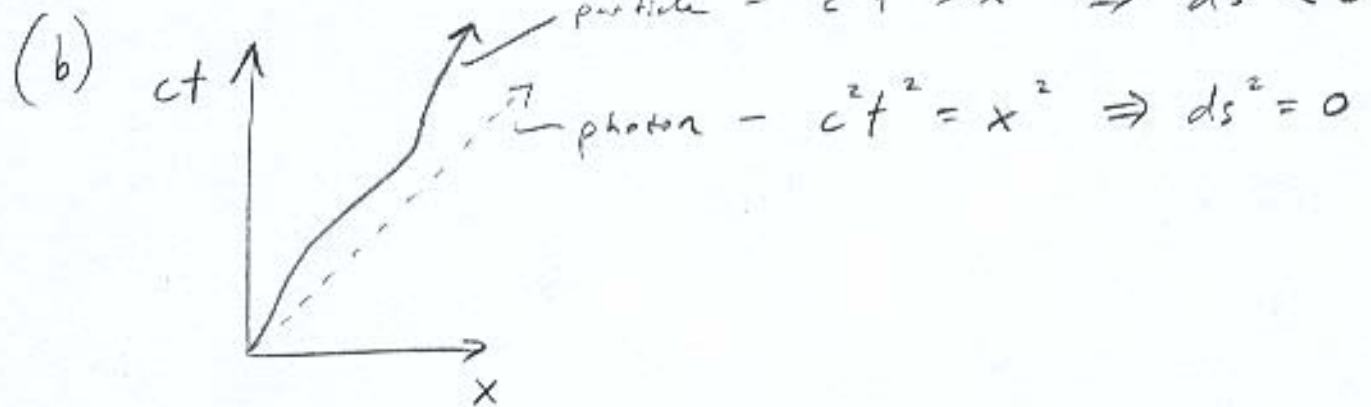 (b) ct particle - c t > x ⇒ ds
photon - c²t² = x² ⇒ ds² = 0
x